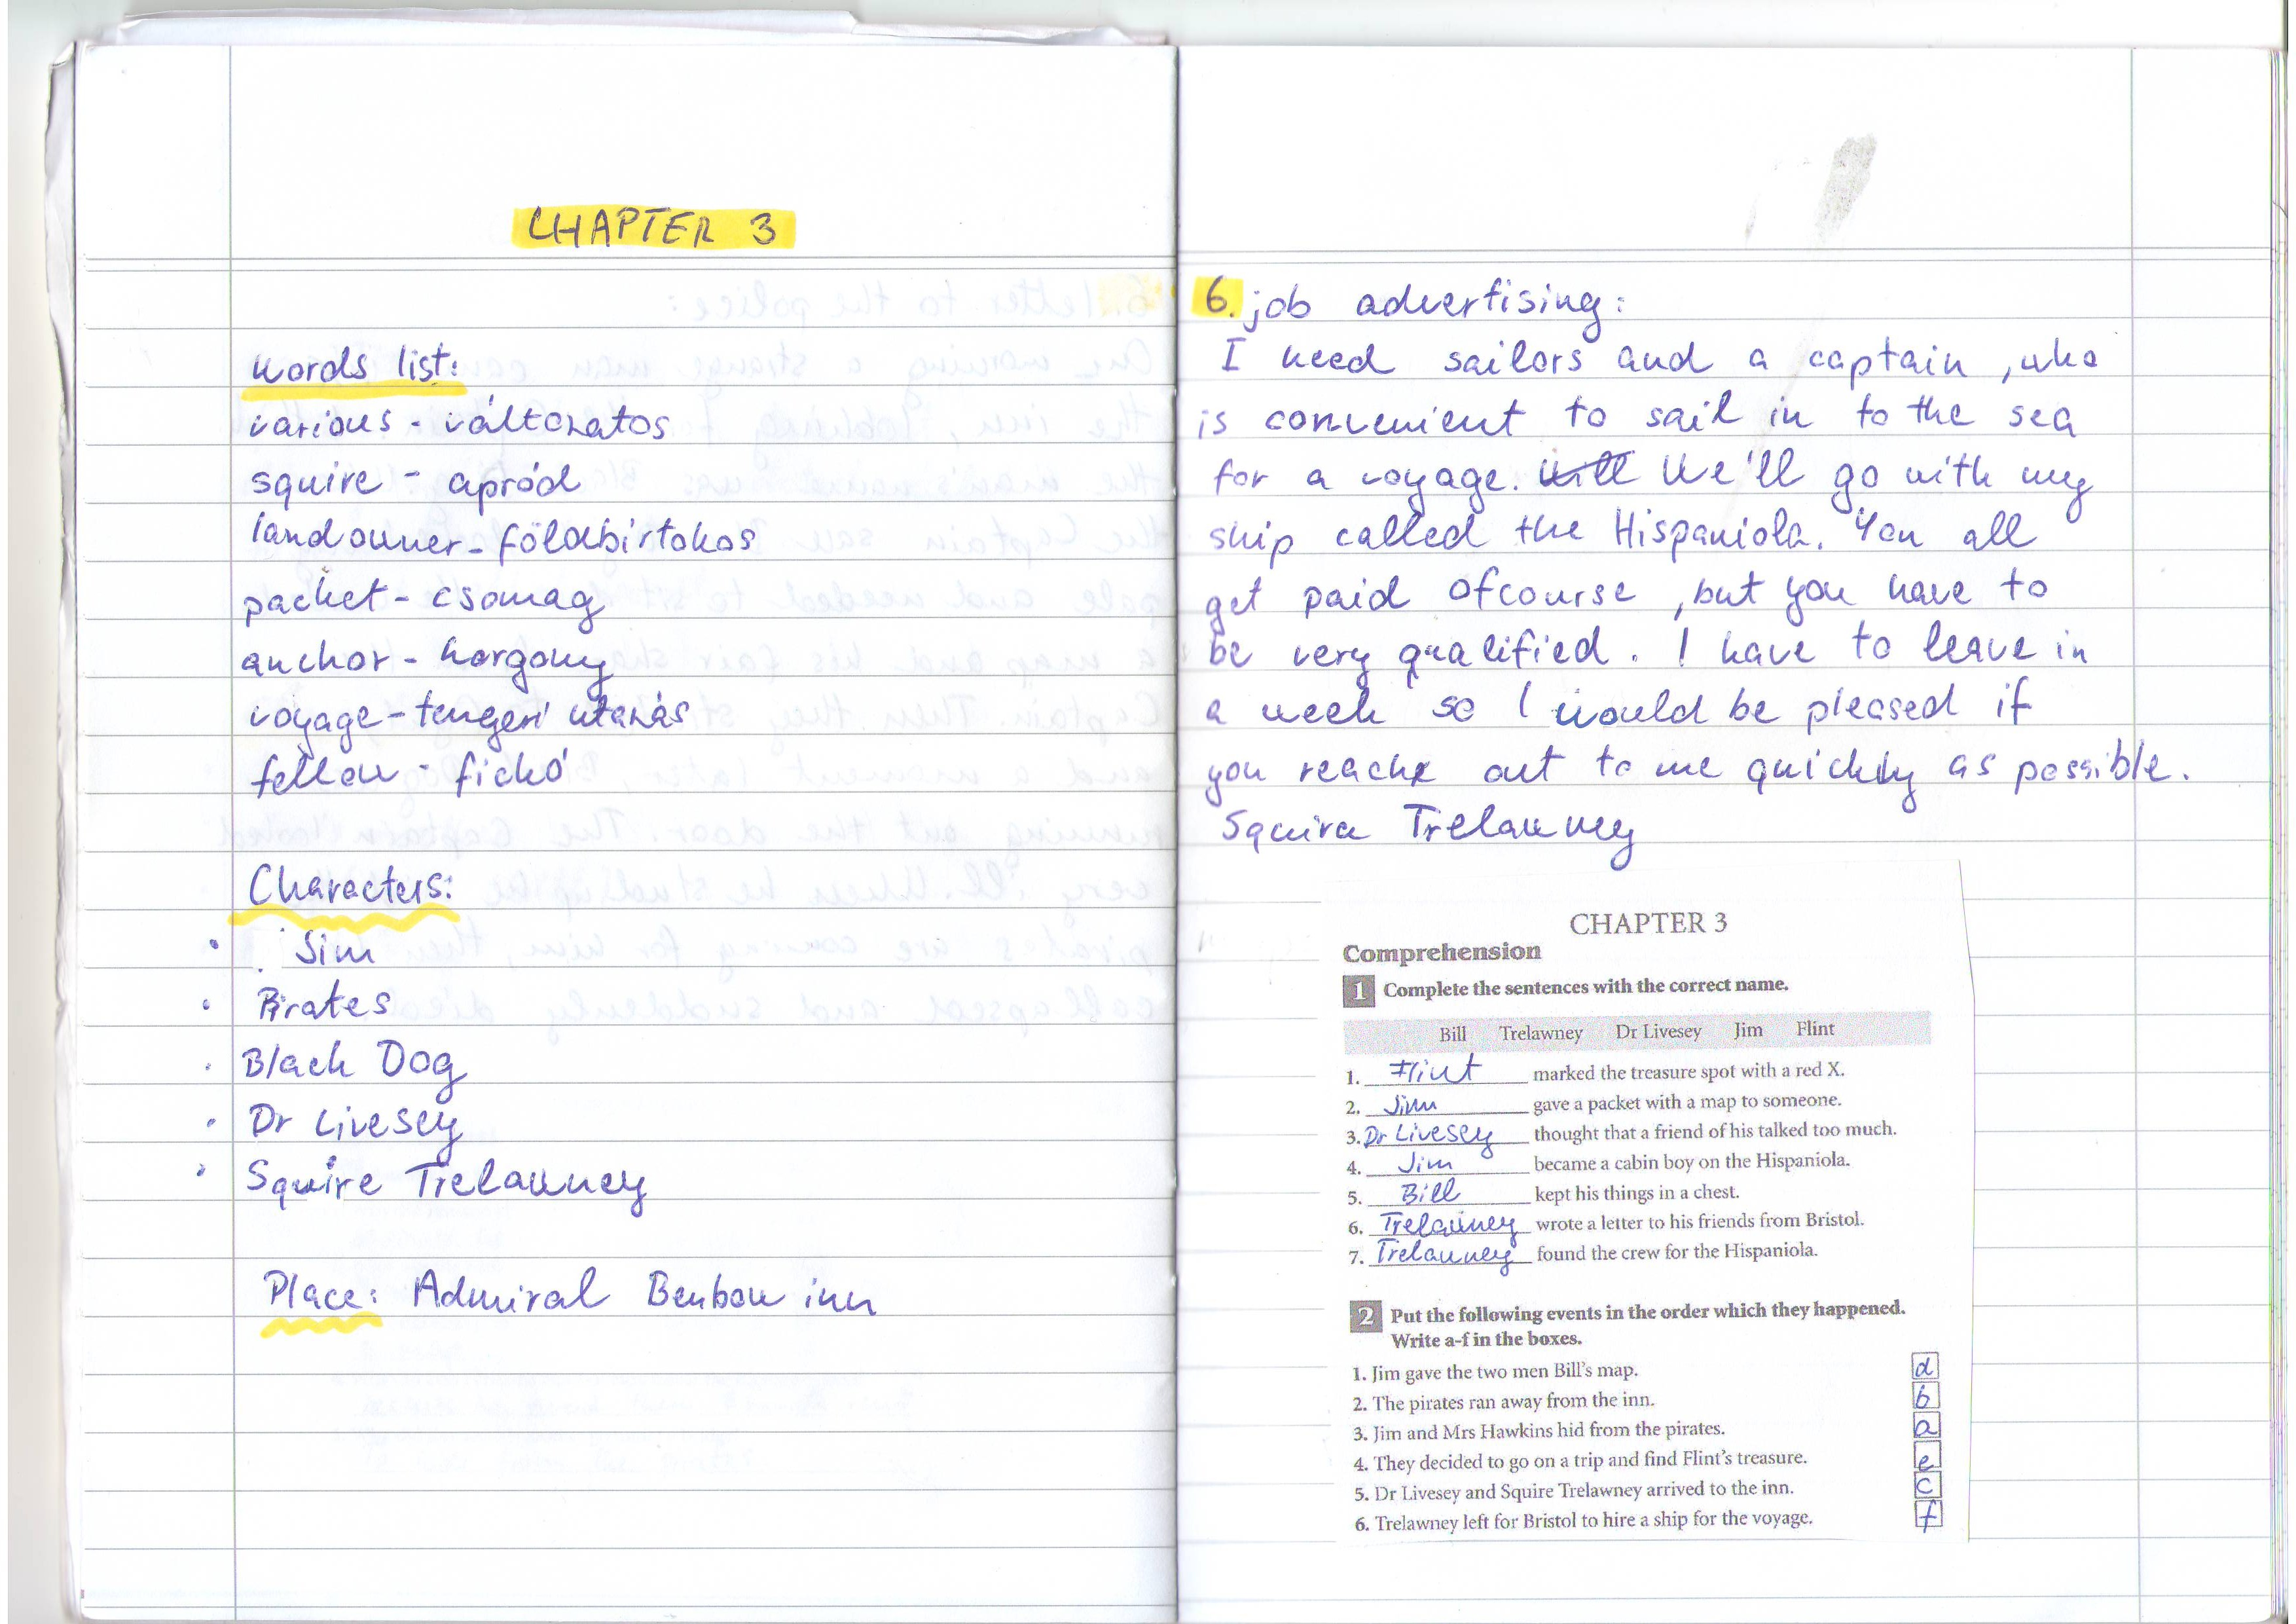 CHAPTER 3
words list:
various - változatos
squire - apród
landowner - földbirtokos
packet - csomag
anchor - horgony
voyage - tengeri utazás
fellow - fickó
Characters:
• Jim
• Pirates
• Black Dog
• Dr Livesey
• Squire Trelawney
Place: Admiral Benbow inn
6. job advertising:
I need sailors and a captain, who
is convenient to sail in to the sea
for a voyage. We'll go with my
ship called the Hispaniola. You all
get paid ofcourse, but you have to
be very qualified. I have to leave in
a week so I would be pleased if
you reach out to me quickly as possible.
Squire Trelawney
CHAPTER 3
Comprehension
1 Complete the sentences with the correct name.
Bill Trelawney Dr Livesey Jim Flint
1. Flint marked the treasure spot with a red X.
2. Jim gave a packet with a map to someone.
3. Dr Livesey thought that a friend of his talked too much.
4. Jim became a cabin boy on the Hispaniola.
5. Bill kept his things in a chest.
6. Trelawney wrote a letter to his friends from Bristol.
7. Trelawney found the crew for the Hispaniola.
2 Put the following events in the order which they happened.
Write a-f in the boxes.
1. Jim gave the two men Bill's map. d
2. The pirates ran away from the inn. b
3. Jim and Mrs Hawkins hid from the pirates. a
4. They decided to go on a trip and find Flint's treasure. e
5. Dr Livesey and Squire Trelawney arrived to the inn. c
6. Trelawney left for Bristol to hire a ship for the voyage. f